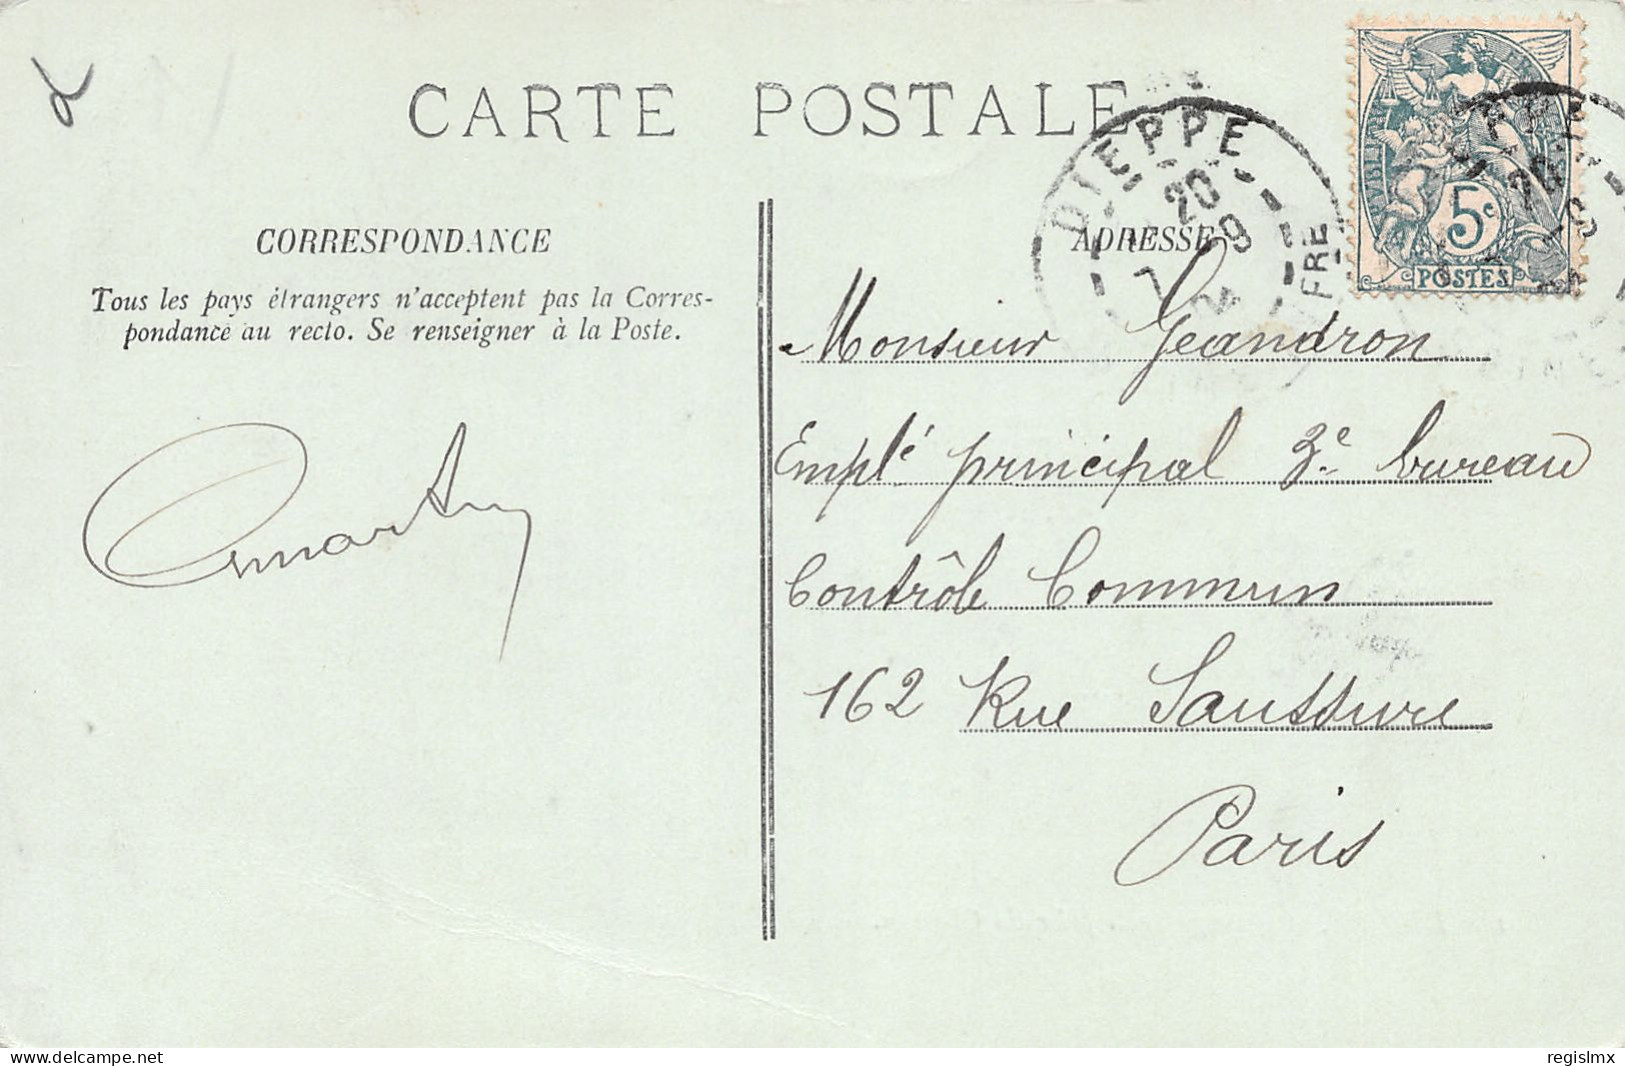 CARTE POSTALE
CORRESPONDANCE
Tous les pays étrangers n'acceptent pas la Corres-
pondance au recto. Se renseigner à la Poste.
DIEPPE
20
7 9
04
FRE
5c
POSTES
ADRESSE
Monsieur Geandron
Emplé principal 3e bureau
Contrôle Commun
162 Rue Saussure
Paris
delcampe.net
regislmx